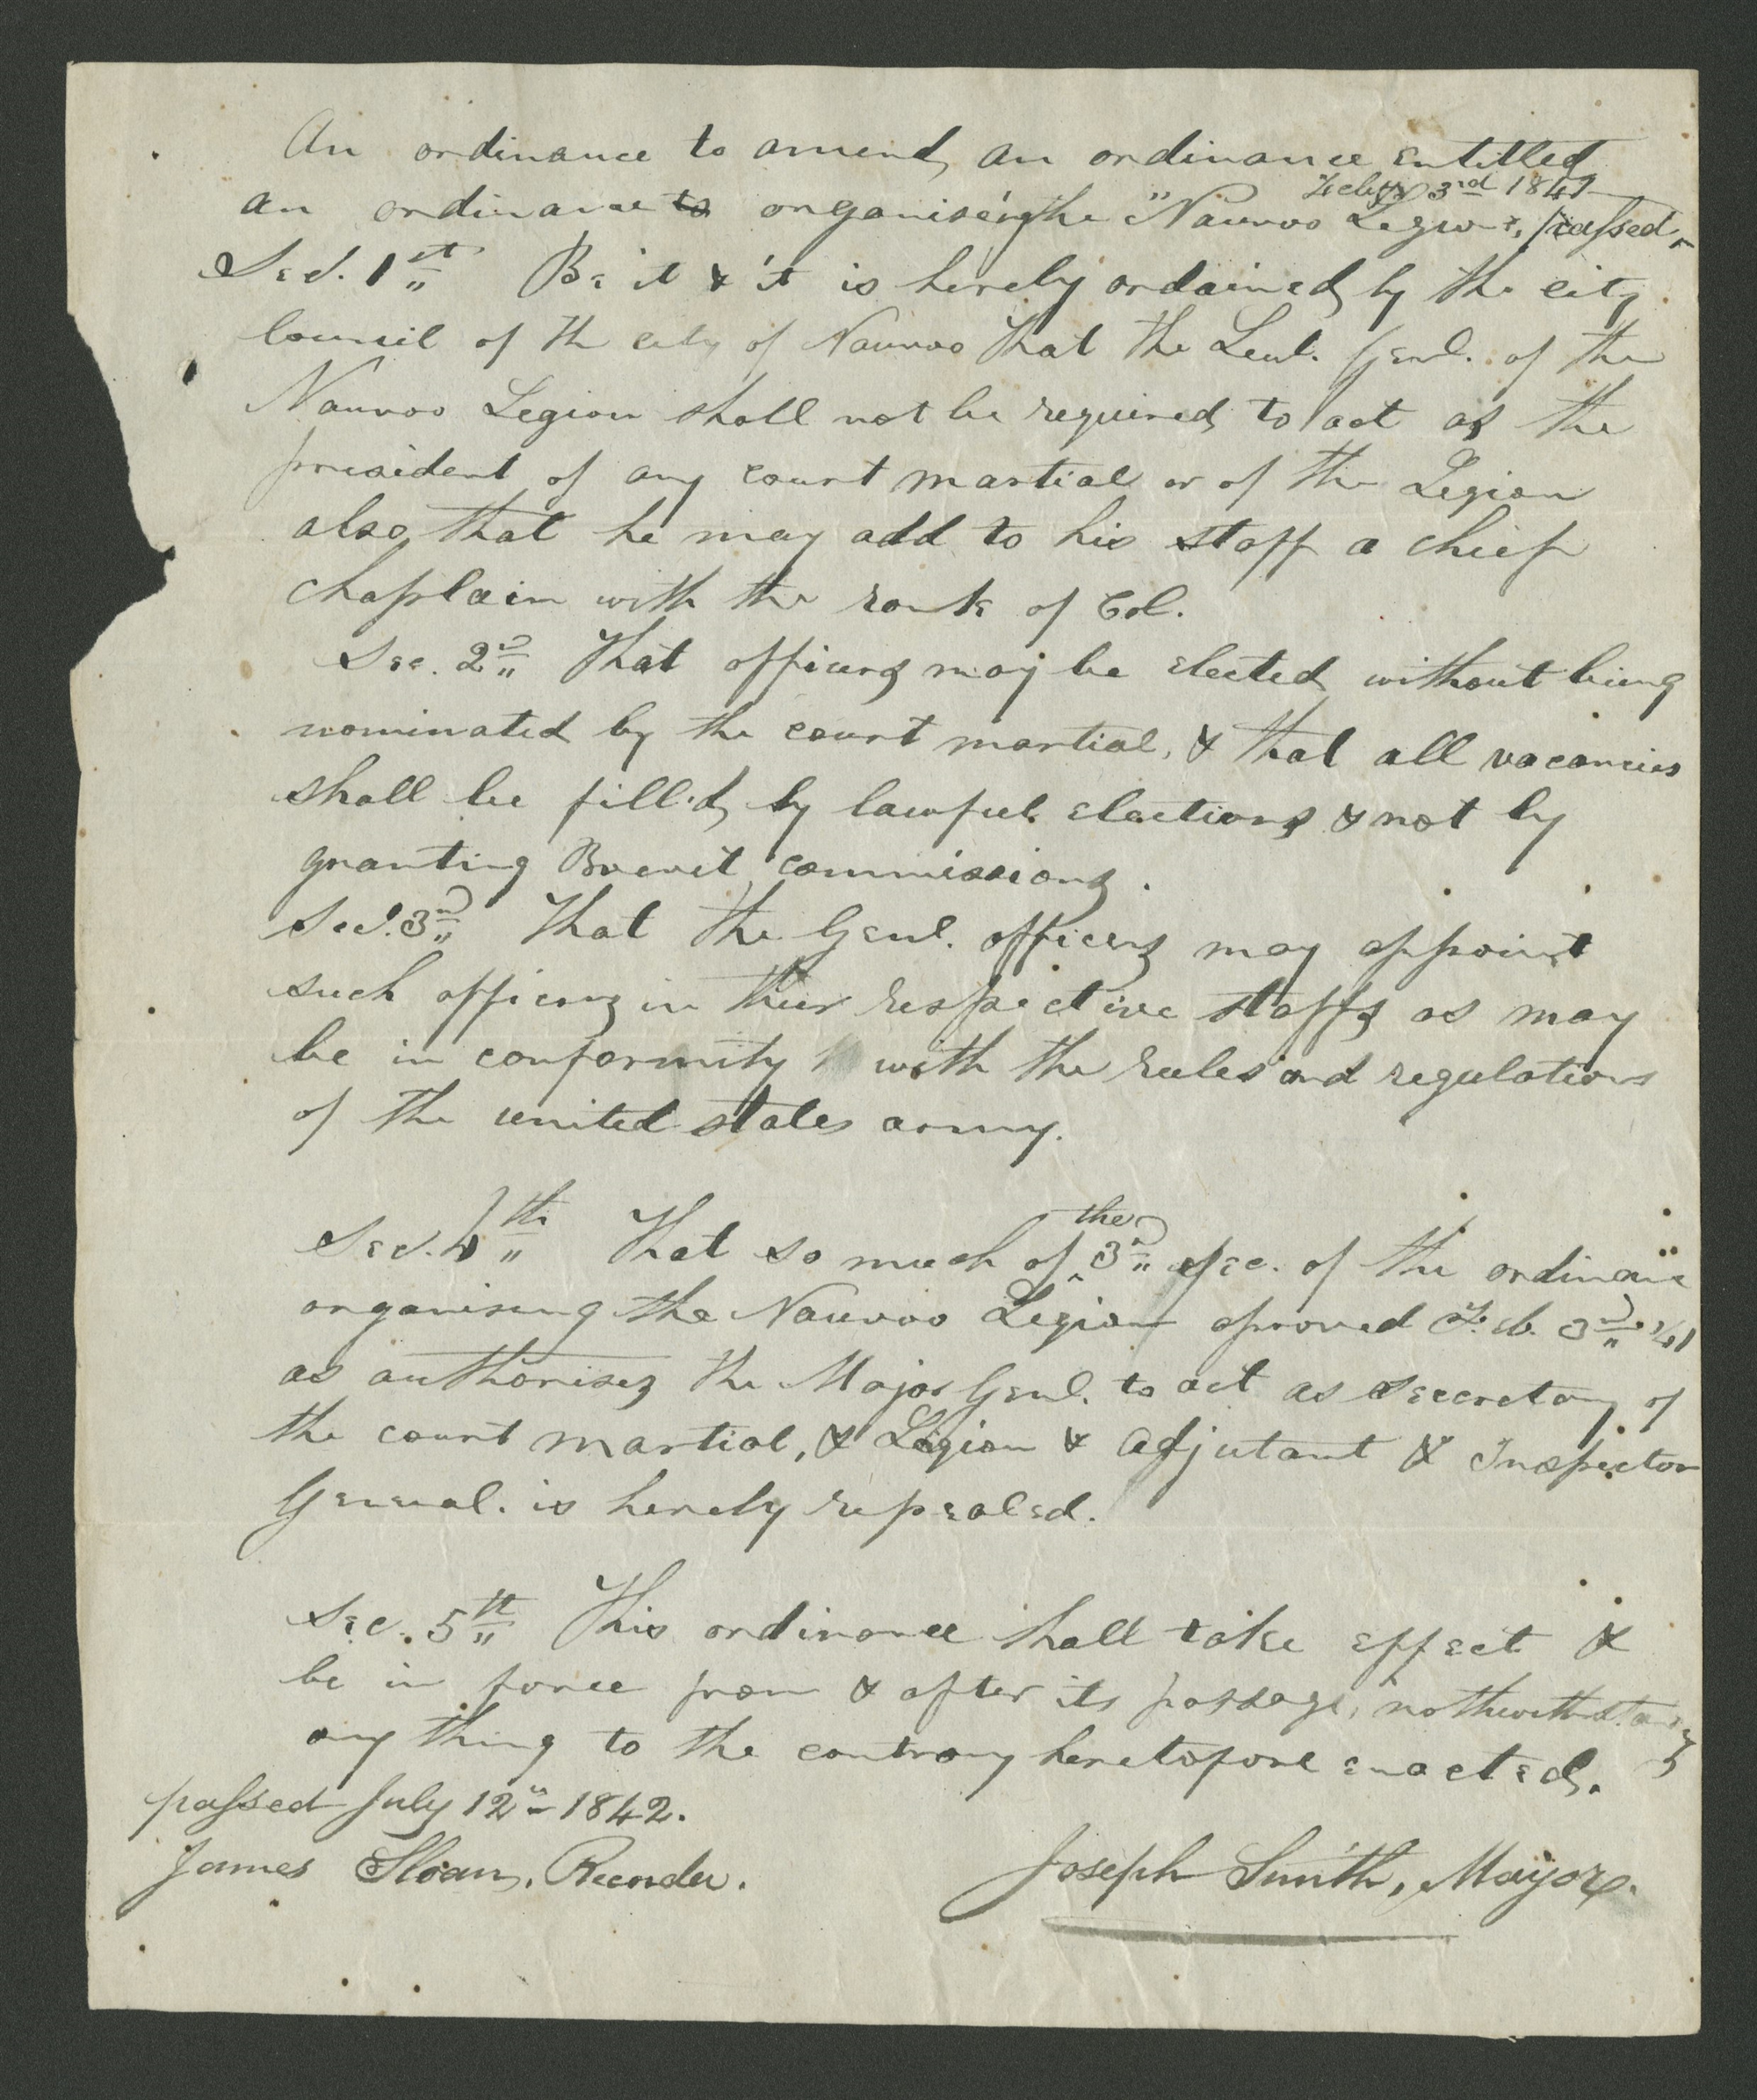 An ordinance to amend, an ordinance entitled
an ordinance to organiseing the "Nauvoo Legion", passed
Feby. 3rd 1841
Sec. 1st Be it & it is hereby ordained, by the city
Council of the city of Nauvoo that the Leut. Genl. of the
Nauvoo Legion shall not be required to act as the
president of any court martial or of the Legion
also, that he may add to his staff a chief
chaplain with the rank of Col.
Sec. 2nd That officers may be elected without being
nominated by the court martial, & that all vacancies
shall be filled, by lawful elections & not by
granting Brevit commissions.
Sec. 3rd That the Genl. officers may appoint
such officers in their respective staffs as may
be in conformity with the rules and regulations
of the united states army.
Sec. 4th That so much of the 3rd sec. of the ordinance
organising the Nauvoo Legion aproved Feb. 3rd '41
as authorises the Major Genl. to act as secretary of
the court martial, & Legion & Adjutant & Inspector
General. is hereby repealed.
Sec. 5th This ordinance shall take effect &
be in force from & after its passage,
any thing to the contrary heretofore enacted.
passed July 12th 1842.
James Sloan, Recorder.
Joseph Smith, Mayor.